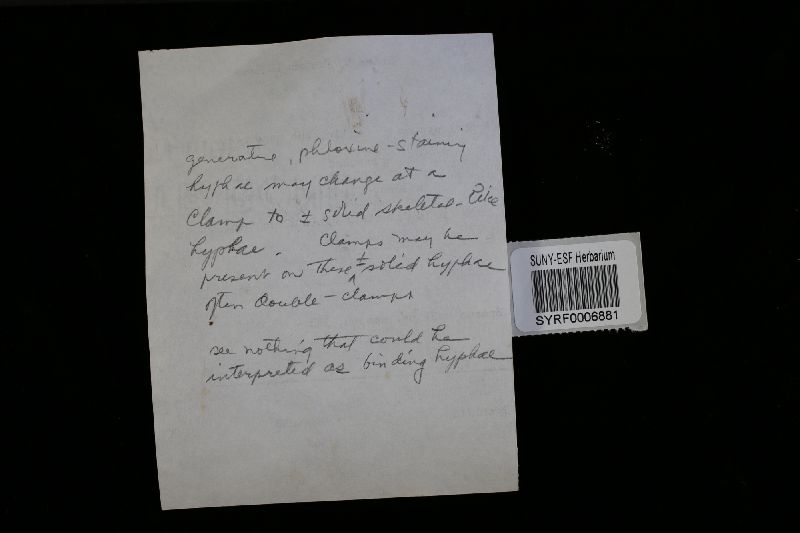 generative, phloxine-staining
hyphae may change at a
clamp to ± solid skeletal-like
hyphae. Clamps may be
present on these ± solid hyphae
often double-clamps
see nothing that could be
interpreted as binding hyphae
SUNY-ESF Herbarium
SYRF0006881